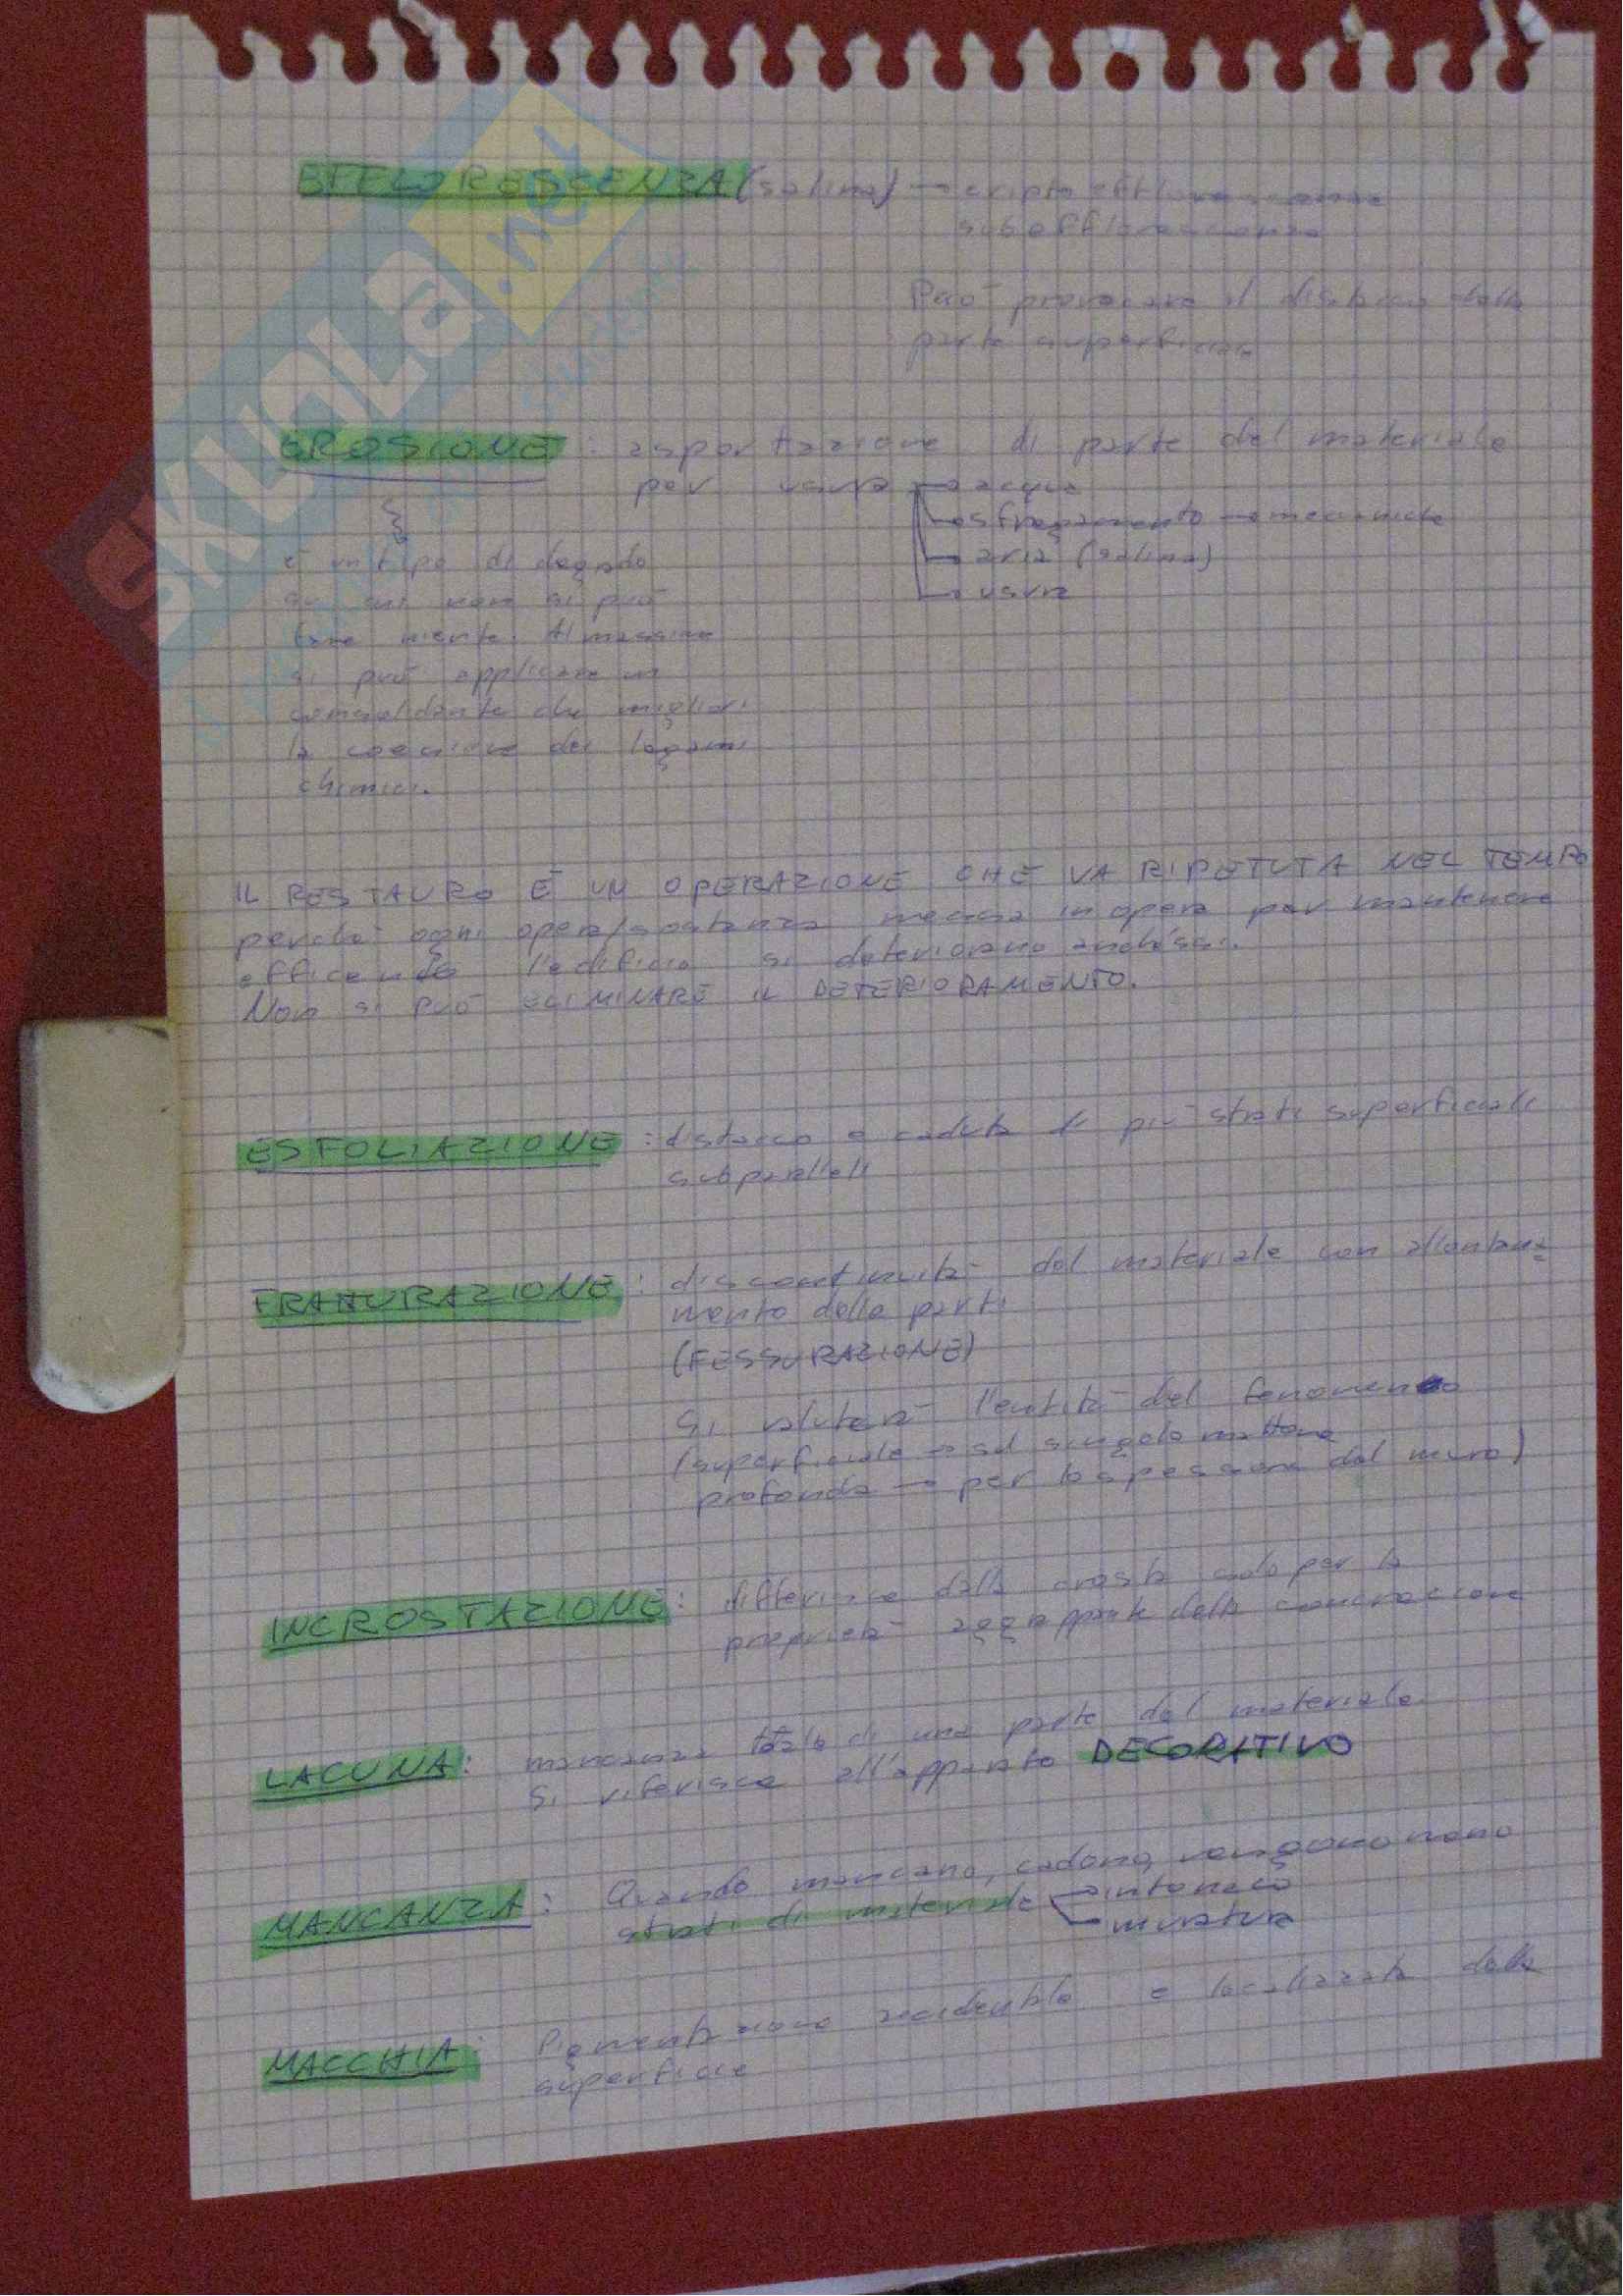 EFFLORESCENZA (salina) → cripto efflorescenza
subefflorescenza
Può provocare il distacco della
parte superficiale
EROSIONE : asportazione di parte del materiale
per usura → acqua
→ sfregamento → meccaniche
→ aria (salina)
→ usura
è un tipo di degrado
su cui non si può
fare niente. Al massimo
si può applicare un
consolidante che migliori
la coesione dei legami
chimici.
IL RESTAURO È UN OPERAZIONE CHE VA RIPETUTA NEL TEMPO
perché ogni opera/sostanza messa in opera per mantenere
efficente l'edificio si deteriorano anch'essi.
Non si può ELIMINARE IL DETERIORAMENTO.
ESFOLIAZIONE : distacco e caduta di più strati superficiali
subparalleli
FRATTURAZIONE : discontinuità del materiale con allontana=
mento delle parti
(FESSURAZIONE)
Si valuterà l'entità del fenomeno
(superficiale → sul singolo mattone
profonda → per lo spessore del muro)
INCROSTAZIONE : differisce dalla crosta solo per la
proprietà aggrappante della concrezione
LACUNA : mancanza totale di una parte del materiale.
Si riferisce all'apparato DECORATIVO
MANCANZA : Quando mancano, cadono, vengono meno
strati di materiale → intonaco
→ muratura
MACCHIA : Pigmentazione accidentale e localizzata della
superficie
SKUOLA.net